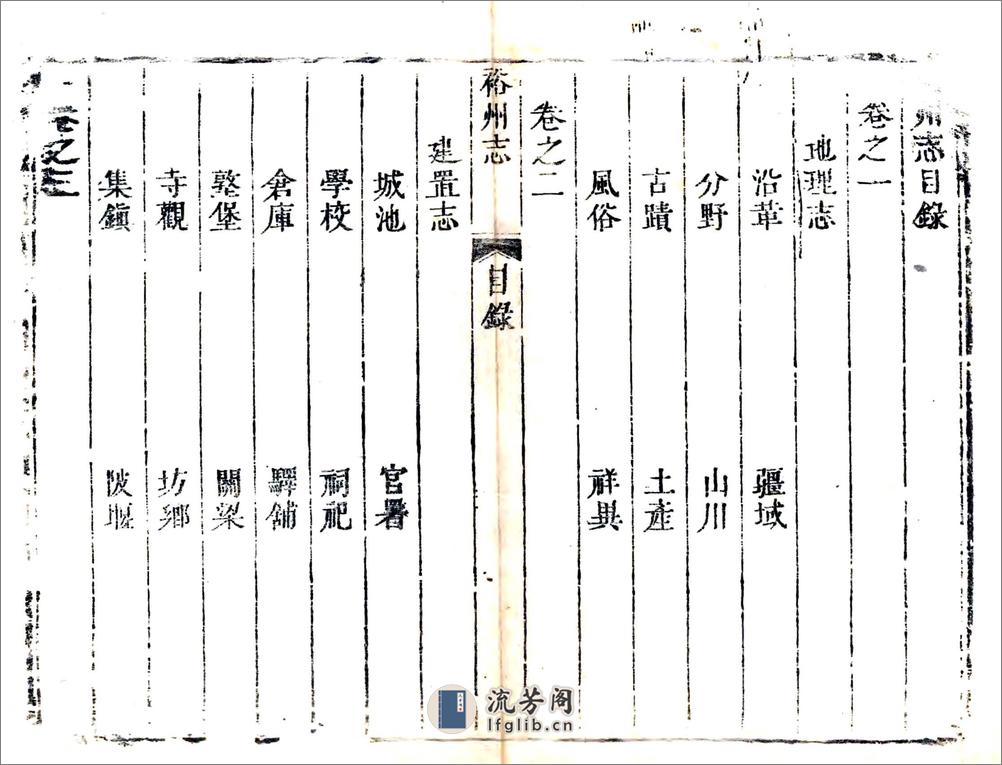 州志目錄
卷之一
地理志
沿革 疆域
分野 山川
古蹟 土產
風俗 祥異
卷之二
裕州志 目錄
建置志
城池 官署
學校 祠祀
倉庫 驛舖
墪堡 關梁
寺觀 坊鄉
集鎮 陂堰
卷之三
流芳阁
lfglib.cn